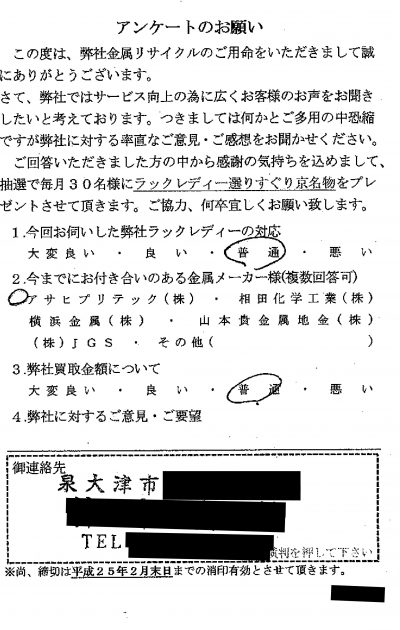 アンケートのお願い
この度は、弊社金属リサイクルのご用命をいただきまして誠
にありがとうございます。
さて、弊社ではサービス向上の為に広くお客様のお声をお聞き
したいと考えております。つきましては何かとご多用の中恐縮
ですが弊社に対する率直なご意見・ご感想をお聞かせください。
ご回答いただきました方の中から感謝の気持ちを込めまして、
抽選で毎月３０名様にラックレディー選りすぐり京名物をプレ
ゼントさせて頂きます。ご協力、何卒宜しくお願い致します。
１.今回お伺いした弊社ラックレディーの対応
大変良い ・ 良い ・ 普通 ・ 悪い
２.今までにお付き合いのある金属メーカー様(複数回答可)
アサヒプリテック(株) ・ 相田化学工業(株)
横浜金属(株) ・ 山本貴金属地金(株)
(株)ＪＧＳ ・ その他( )
３.弊社買取金額について
大変良い ・ 良い ・ 普通 ・ 悪い
４.弊社に対するご意見・ご要望
御連絡先
泉大津市
TEL
判を押して下さい
※尚、締切は平成２５年２月末日までの消印有効とさせて頂きます。